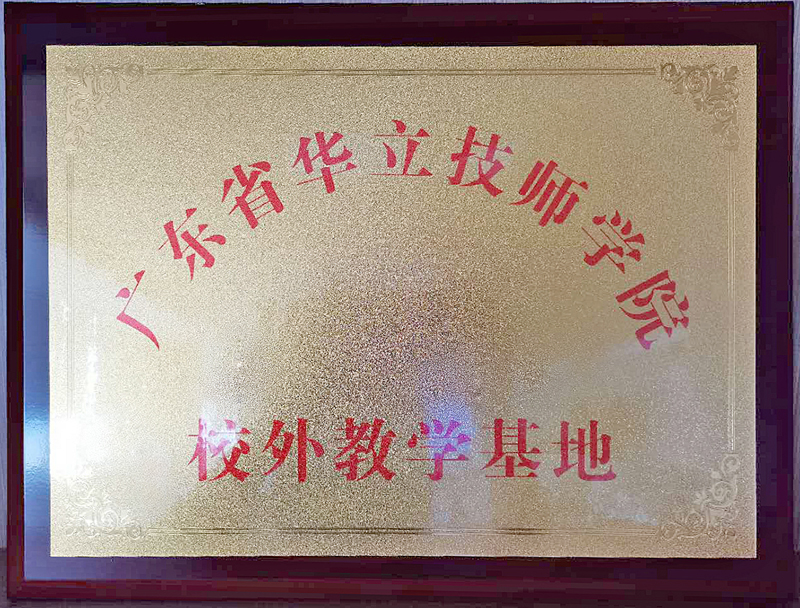 广东省华立技师学院
校外教学基地